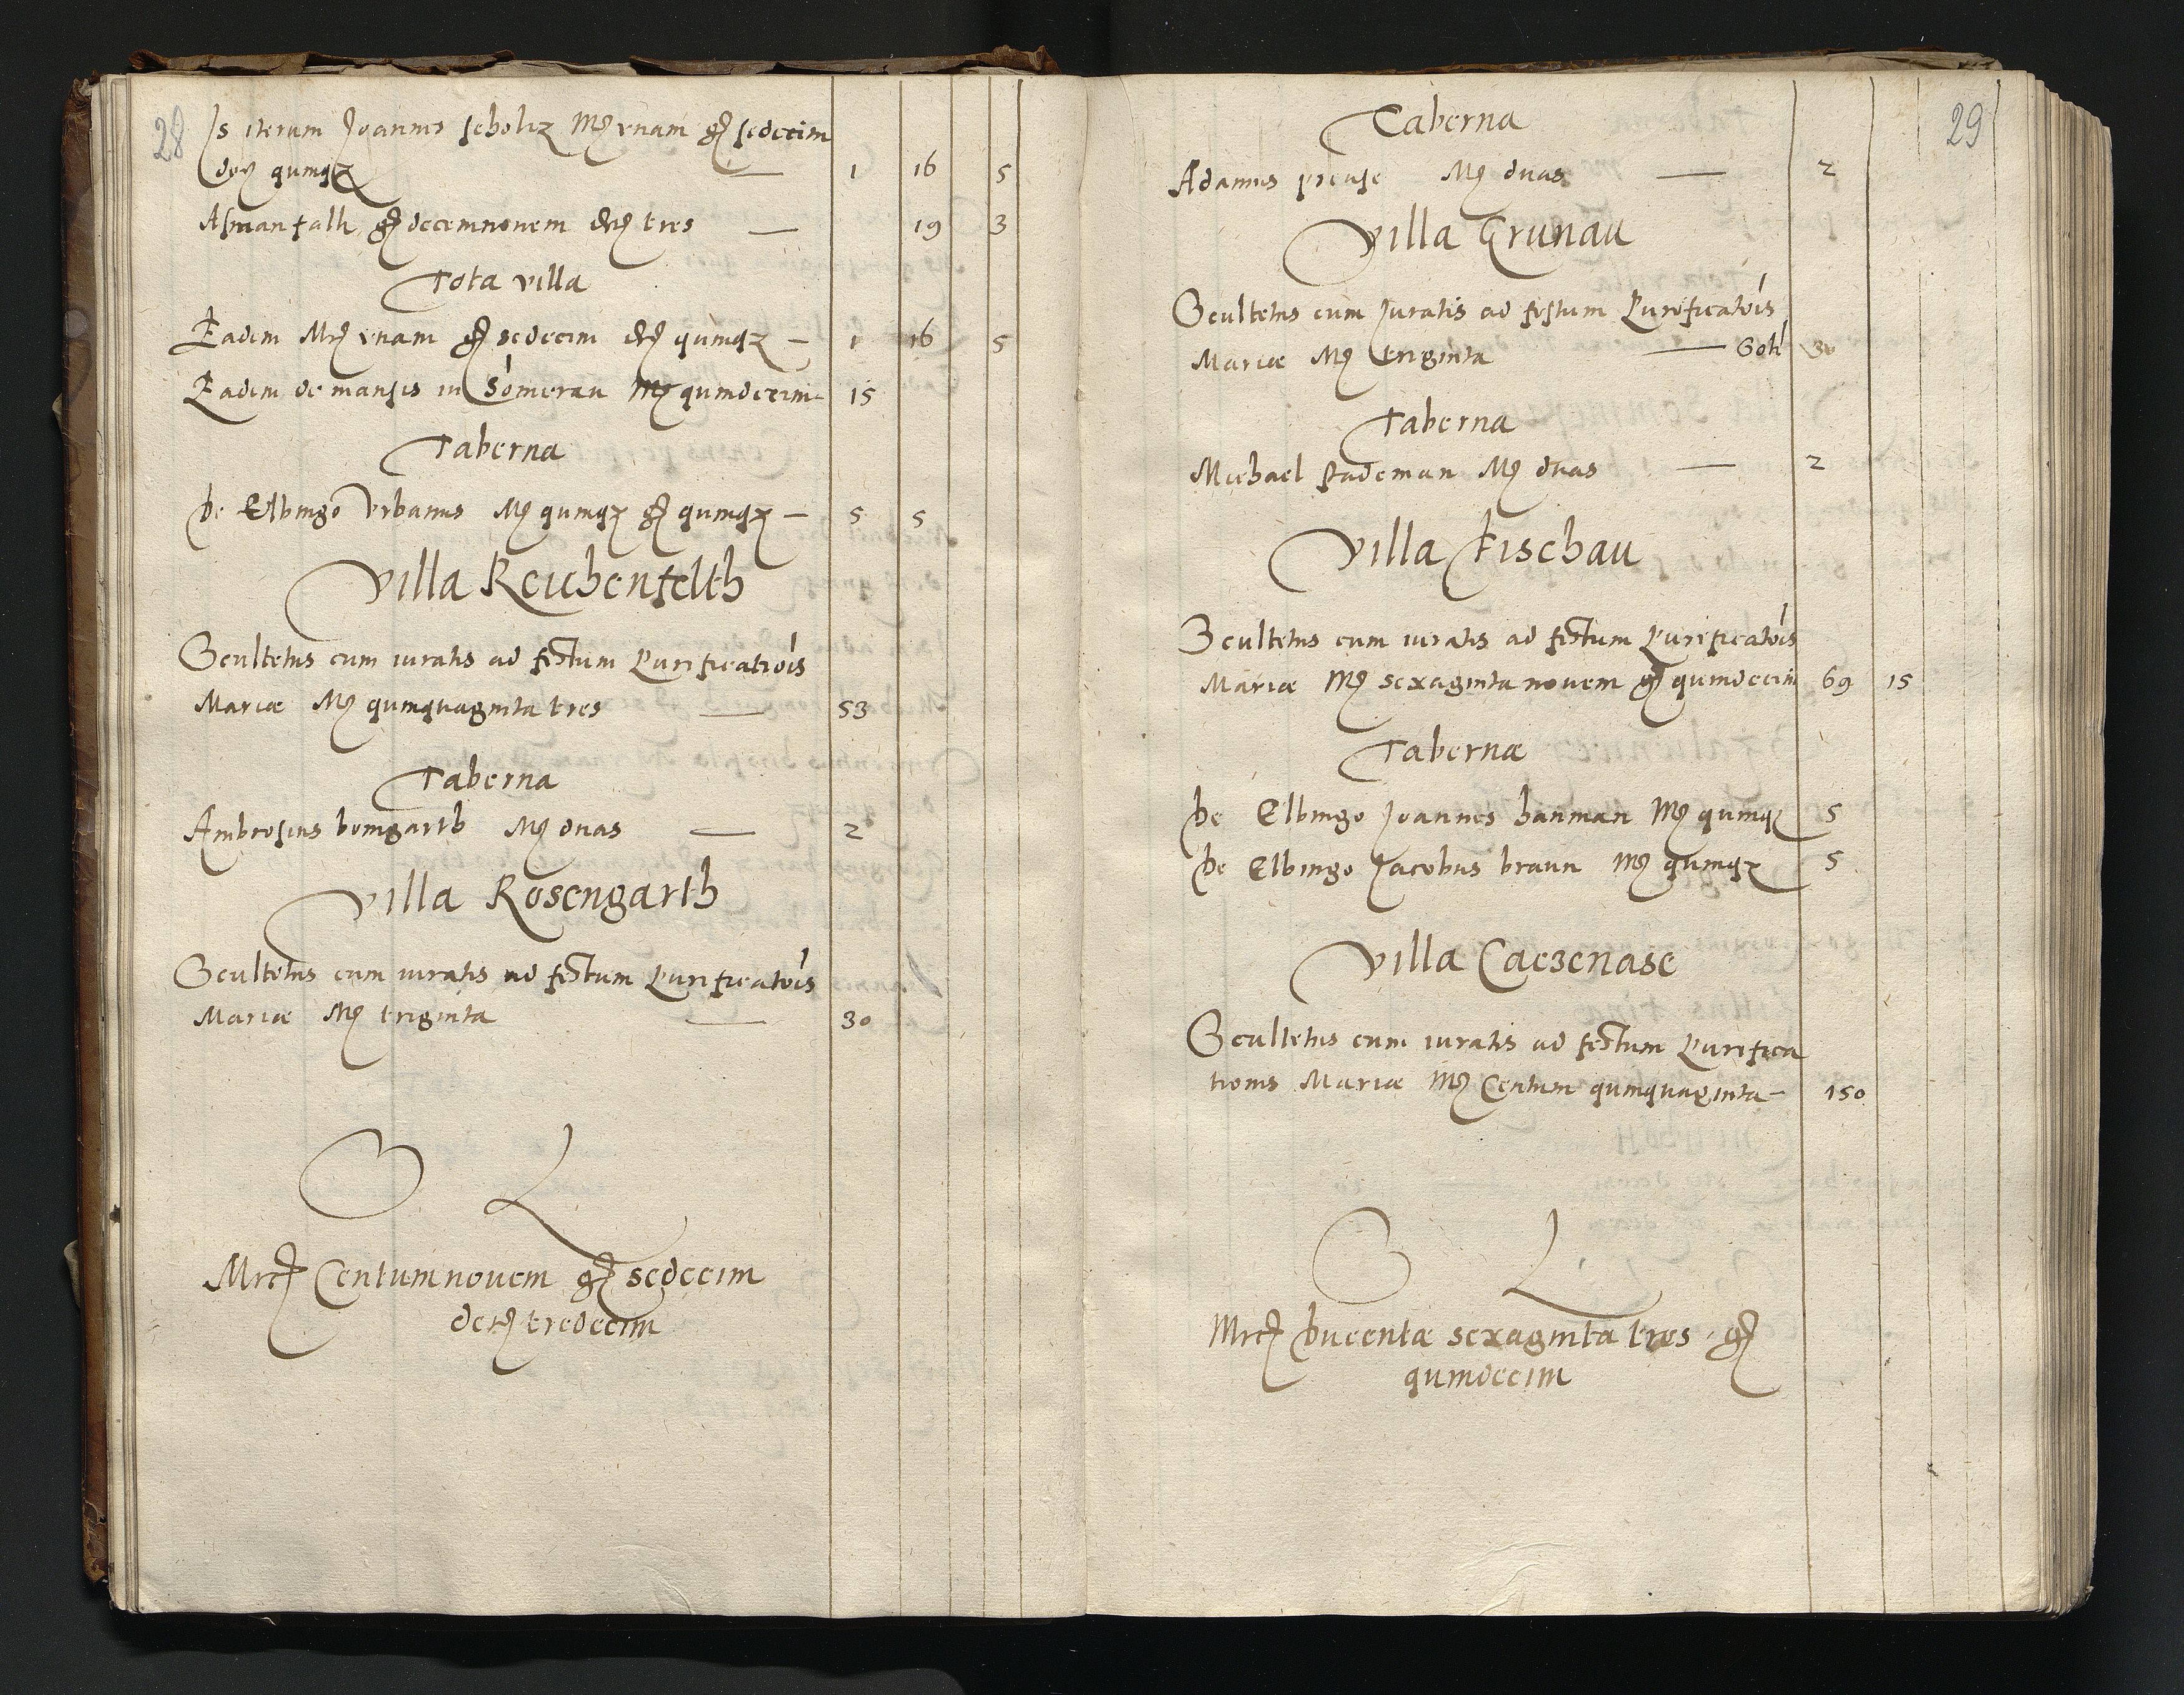 28
Is iterum Joannes scholtz Mr͛ unam gr͛ sedecim
den͛ quinqꝫ — 1 16 5
Asman falk gr͛ decemnovem den͛ tres — 19 3
Tota villa
Eadem Mr͛ unam gr͛ sedecim den͛ quinqꝫ — 1 16 5
Eadem de mansis in Somerau Mr͛ quindecim - 15
Taberna
De Elbingo Vrbanus Mr͛ quinqꝫ gr͛ quinqꝫ — 5 5
Villa Reichenfelth
Scultetus cum iuratis ad festum Purificatiois
Mariæ Mr͛ quinquaginta tres — 53
Taberna
Ambrosius bomgarth Mr͛ duas — 2
Villa Rosengarth
Scultetus cum iuratis ad festum Purificatois
Mariæ Mr͛ triginta — 30
S L
Mrc͛ Centumnovem gr͛ sedecim
den͛ tredecim
29
Taberna
Adamus preuse Mr͛ duas — 2
Villa Grunau
Scultetus cum Juratis ad festum Purificatois
Mariæ Mr͛ triginta — Solt 30
Taberna
Michael stademan Mr͛ duas — 2
Villa Fischau
Scultetus cum iuratis ad festum Purificatois
Mariæ Mr͛ sexaginta novem gr͛ quindecim 69 15
Tabernæ
De Elbingo Joannes hanman Mr͛ quinqꝫ 5
De Elbingo Jacobus braun Mr͛ quinqꝫ 5
Villa Caczenase
Scultetus cum iuratis ad festum Purifica
tionis Mariæ Mr͛ Centum quinquaginta — 150
S L
Mrc͛ Ducentæ sexaginta tres gr͛
quindecim